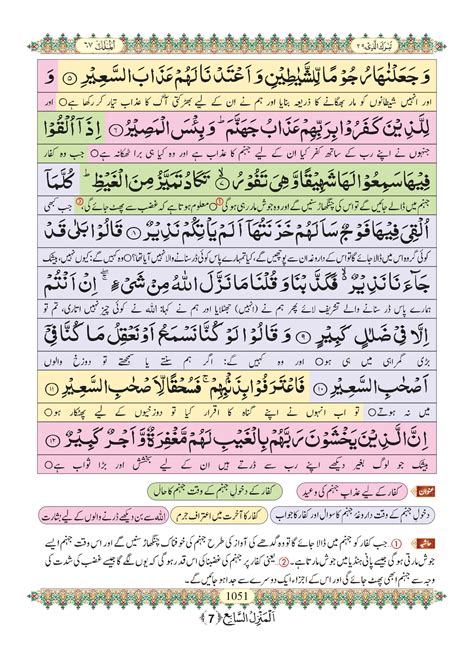 اَلْمُلْك ٦٧
تَبٰرَكَ الَّذِیْ ٢٩
وَ جَعَلْنٰهَا رُجُوْمًا لِّلشَّیٰطِیْنِ وَ اَعْتَدْنَا لَهُمْ عَذَابَ السَّعِیْرِ ۵ وَ
اور انہیں شیطانوں کو مار بھگانے کا ذریعہ بنایا اور ہم نے ان کے لیے بھڑکتی آگ کا عذاب تیار کر رکھا ہے ○ اور
لِلَّذِیْنَ كَفَرُوْا بِرَبِّهِمْ عَذَابُ جَهَنَّمَ ؕ وَ بِئْسَ الْمَصِیْرُ ۶ اِذَاۤ اُلْقُوْا
جنہوں نے اپنے رب کے ساتھ کفر کیا ان کے لیے جہنم کا عذاب ہے اور وہ کیا ہی برا ٹھکانہ ہے ○ جب وہ کفار
فِیْهَا سَمِعُوْا لَهَا شَهِیْقًا وَّ هِیَ تَفُوْرُ ۷ تَكَادُ تَمَیَّزُ مِنَ الْغَیْظِ ؕ كُلَّمَاۤ
جہنم میں ڈالے جائیں گے تو اس کی چنگھاڑ سنیں گے اور وہ جوش مار رہی ہوگی ① ○ معلوم ہوتا ہے کہ غضب سے پھٹ جائے گی ② جب کبھی
اُلْقِیَ فِیْهَا فَوْجٌ سَاَلَهُمْ خَزَنَتُهَاۤ اَلَمْ یَاْتِكُمْ نَذِیْرٌ ۸ قَالُوْا بَلٰى قَدْ
کوئی گروہ اس میں ڈالا جائے گا تو اس کے داروغہ ان سے پوچھیں گے، کیا تمہارے پاس کوئی ڈر سنانے والا نہیں آیا تھا؟ ○ وہ کہیں گے: کیوں نہیں، بیشک
جَآءَنَا نَذِیْرٌ ۙ۬ فَكَذَّبْنَا وَ قُلْنَا مَا نَزَّلَ اللّٰهُ مِنْ شَیْءٍ ۚۖ اِنْ اَنْتُمْ
ہمارے پاس ڈر سنانے والے تشریف لائے پھر ہم نے (انہیں) جھٹلایا اور ہم نے کہا: اللہ نے کوئی چیز نہیں اتاری، تم تو
اِلَّا فِیْ ضَلٰلٍ كَبِیْرٍ ۹ وَ قَالُوْا لَوْ كُنَّا نَسْمَعُ اَوْ نَعْقِلُ مَا كُنَّا فِیْۤ
بڑی گمراہی میں ہی ہو ○ اور وہ کہیں گے: اگر ہم سنتے یا سمجھتے تو دوزخ والوں
اَصْحٰبِ السَّعِیْرِ ۱۰ فَاعْتَرَفُوْا بِذَنْۢبِهِمْ ۚ فَسُحْقًا لِّاَصْحٰبِ السَّعِیْرِ ۱۱
میں نہ ہوتے ○ تو اب انہوں نے اپنے گناہ کا اقرار کیا تو دوزخیوں کے لیے پھٹکار ہو ○
اِنَّ الَّذِیْنَ یَخْشَوْنَ رَبَّهُمْ بِالْغَیْبِ لَهُمْ مَّغْفِرَةٌ وَّ اَجْرٌ كَبِیْرٌ ۱۲
بیشک جو لوگ بغیر دیکھے اپنے رب سے ڈرتے ہیں ان کے لیے بخشش اور بڑا ثواب ہے ○
عنوان کفار کے لیے عذابِ جہنم کی وعید کفار کے دخولِ جہنم کے وقت جہنم کا حال
کفار کے دخولِ جہنم کے وقت داروغۂ جہنم کا سوال اور کفار کا جواب کفار کا آخرت میں اعترافِ جرم اللہ سے بن دیکھے ڈرنے والوں کے لیے بشارت
حاشیہ ①… جب کفار کو جہنم میں ڈالا جائے گا تو وہ گدھے کی آواز کی طرح جہنم کی خوفناک چنگھاڑ سنیں گے اور اس وقت جہنم ایسے
جوش مارتی ہوگی جیسے پانی ہنڈیا میں جوش مارتا ہے۔ ②… یعنی کفار پر جہنم کی غضبناکی اس قدر ہوگی کہ یوں لگے گا جیسے غضب کی شدت کی
وجہ سے جہنم ابھی پھٹ جائے گی اور اس کے اجزاء ایک دوسرے سے جدا ہو جائیں گے۔
1051
اَلْمَنْزِلُ السَّابِع ﴿7﴾